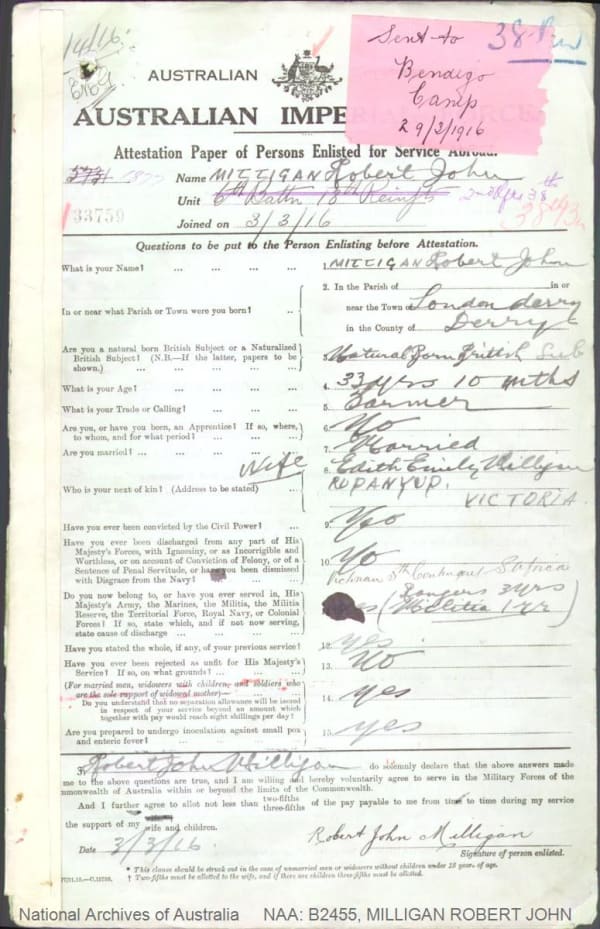 14/16
Sent to
Bendigo
Camp
29/2/1916
38 Bn
AUSTRALIAN
AUSTRALIAN IMPERIAL FORCE
Attestation Paper of Persons Enlisted for Service Abroad.
1877
33759
Name MILLIGAN Robert John
Unit 6th Battn 18th Reinfts 38th
Joined on 3/3/16
Questions to be put to the Person Enlisting before Attestation.
What is your Name? ... ... ... ...
1. MILLIGAN Robert John
In or near what Parish or Town were you born? ..
2. In the Parish of in or
near the Town of Londonderry
in the County of Derry
Are you a natural born British Subject or a Naturalized
British Subject? (N.B.—If the latter, papers to be
shown.) ... ... ... ... ...
3. Natural Born British Sub
What is your Age? ... ... ... ...
4. 33 yrs 10 mths
What is your Trade or Calling? ... ... ...
5. Farmer
Are you, or have you been, an Apprentice? If so, where,
to whom, and for what period? ... ... ...
6. No
Are you married? ... ... ... ... ...
7. Married
Wife
Who is your next of kin? (Address to be stated) ...
8. Edith Emily Milligan
RUPANYUP.
VICTORIA.
Have you ever been convicted by the Civil Power? ...
9. No
Have you ever been discharged from any part of His
Majesty's Forces, with Ignominy, or as Incorrigible and
Worthless, or on account of Conviction of Felony, or of a
Sentence of Penal Servitude, or have you been dismissed
with Disgrace from the Navy? ... ...
10. No
Do you now belong to, or have you ever served in, His
Majesty's Army, the Marines, the Militia, the Militia
Reserve, the Territorial Force, Royal Navy, or Colonial
Forces? If so, state which, and if not now serving,
state cause of discharge ... ... ... ...
Victorian 5th Contingent S Africa
Rangers 3 yrs
(Militia 1 yr)
Have you stated the whole, if any, of your previous service?
12. yes
Have you ever been rejected as unfit for His Majesty's
Service? If so, on what grounds? ... ... ...
13. No
(For married men, widowers with children, and soldiers who
are the sole support of widowed mother)—
Do you understand that no separation allowance will be issued
in respect of your service beyond an amount which
together with pay would reach eight shillings per day?
14. yes
Are you prepared to undergo inoculation against small pox
and enteric fever? ... ... ... ...
15. yes
I, Robert John Milligan do solemnly declare that the above answers made
me to the above questions are true, and I am willing and hereby voluntarily agree to serve in the Military Forces of the
mmonwealth of Australia within or beyond the limits of the Commonwealth.
And I further agree to allot not less than two-fifths three-fifths of the pay payable to me from time to time during my service
the support of my wife and children.
Date 3/3/16.
Robert John Milligan
Signature of person enlisted.
* This clause should be struck out in the case of unmarried men or widowers without children under 18 years of age.
† Two-fifths must be allotted to the wife, and if there are children three-fifths must be allotted.
National Archives of Australia NAA: B2455, MILLIGAN ROBERT JOHN